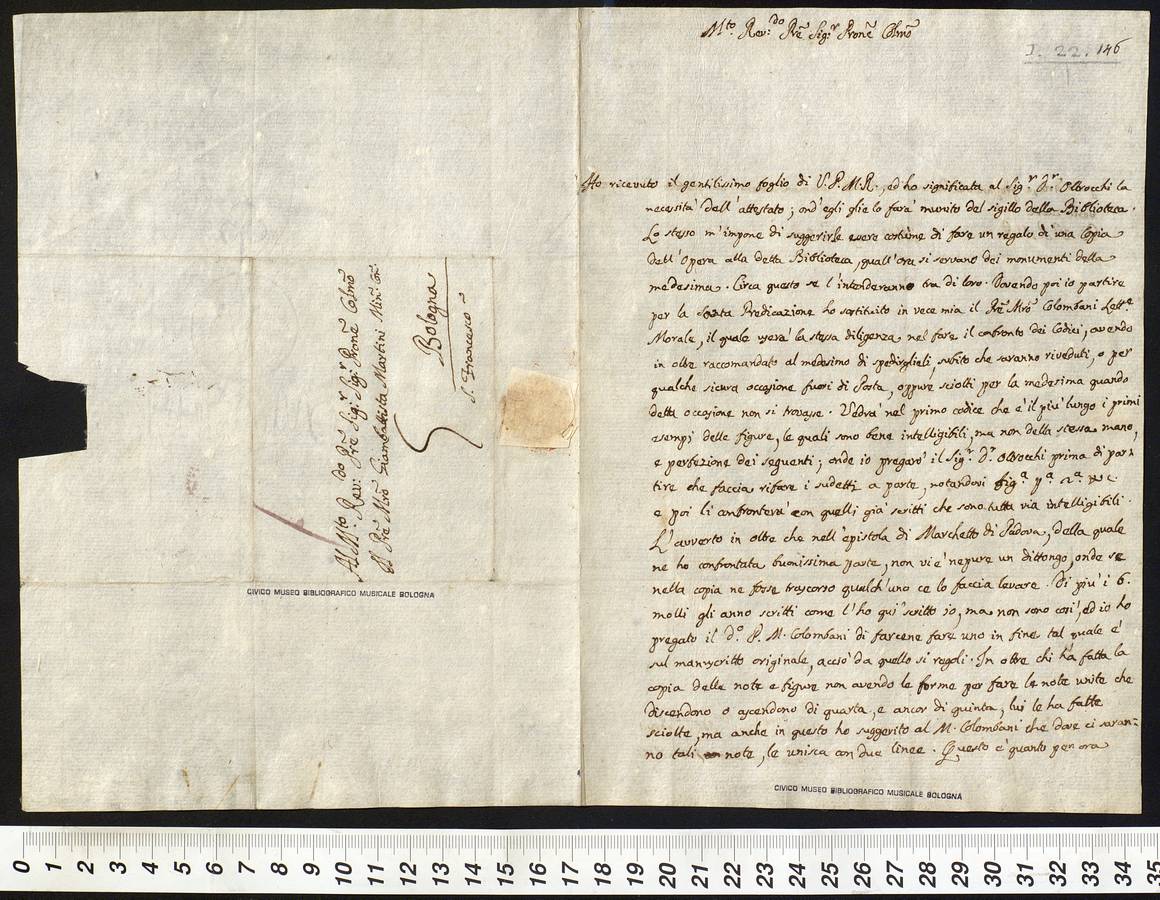 Al M.to Rev: do Prẽ Sig:r Sig:r Pronẽ Colmõ
Il Prẽ Mrõ Giambattista Martini Min: Con:
Bologna
S. Francesco
CIVICO MUSEO BIBLIOGRAFICO MUSICALE BOLOGNA
M.to Rev:do Prẽ Sig:r Pronẽ Colmõ
I. 22. 146
Ho ricevuto il gentilissimo foglio di V. P. M. R., ed ho significata al Sig.r D.r Olbrocchi la
necessita' dell' attestato; ond' egli glie lo fara' munito del sigillo della Biblioteca.
Lo stesso m' impone di suggerirle essere costume di fare un regalo di una copia
dell' Opera alla detta Biblioteca, quall' ora si servano dei monumenti della
medesima. Circa questo se l' intenderanno tra di loro. Dovendo poi io partire
per la Santa Predicazione ho sostituito in vece mia il Prẽ Mrõ Colombani Lett.e
Morale, il quale userà la stessa diligenza nel fare il confronto dei Codici, avendo
in oltre raccomandato al medesimo di spedirglieli, subito che saranno riveduti, o per
qualche sicura occasione fuori di Posta, oppure sciolti per la medesima quando
detta occasione non si trovasse. Vedrà nel primo codice che è il più lungo i primi
esempi delle figure, le quali sono bene intelligibili, ma non della stessa mano,
e perfezione dei seguenti; onde io pregarò il Sig.r D.r Olbrocchi prima di par=
tire che faccia rifare i sudetti a parte, notandovi fig.a p.a 2.a &c.
e poi li confronterà con quelli già scritti che sono tutta via intelligibili.
L' avverto in oltre che nell' epistola di Marchetto di Padova, della quale
ne ho confrontata buonissima parte, non vi è nepure un dittongo, onde se
nella copia ne fosse trascorso qualch' uno ce lo faccia levare. Di più i 6.
molli gli anno scritti come l' ho qui scritto io, ma non sono così, ed io ho
pregato il d.o P. M. Colombani di farcene fare uno in fine tal quale è
sul manuscritto originale, acciò da quello si regoli. In oltre chi hà fatta la
copia delle note e figure non avendo le forme per fare le note unite che
discendono o ascendono di quarta, e ancor di quinta, lui le ha fatte
sciolte, ma anche in questo ho suggerito al M. Colombani che dove ci saran=
no tali note, le unisca con due linee. Questo è quanto per ora
CIVICO MUSEO BIBLIOGRAFICO MUSICALE BOLOGNA
0 1 2 3 4 5 6 7 8 9 10 11 12 13 14 15 16 17 18 19 20 21 22 23 24 25 26 27 28 29 30 31 32 33 34 35